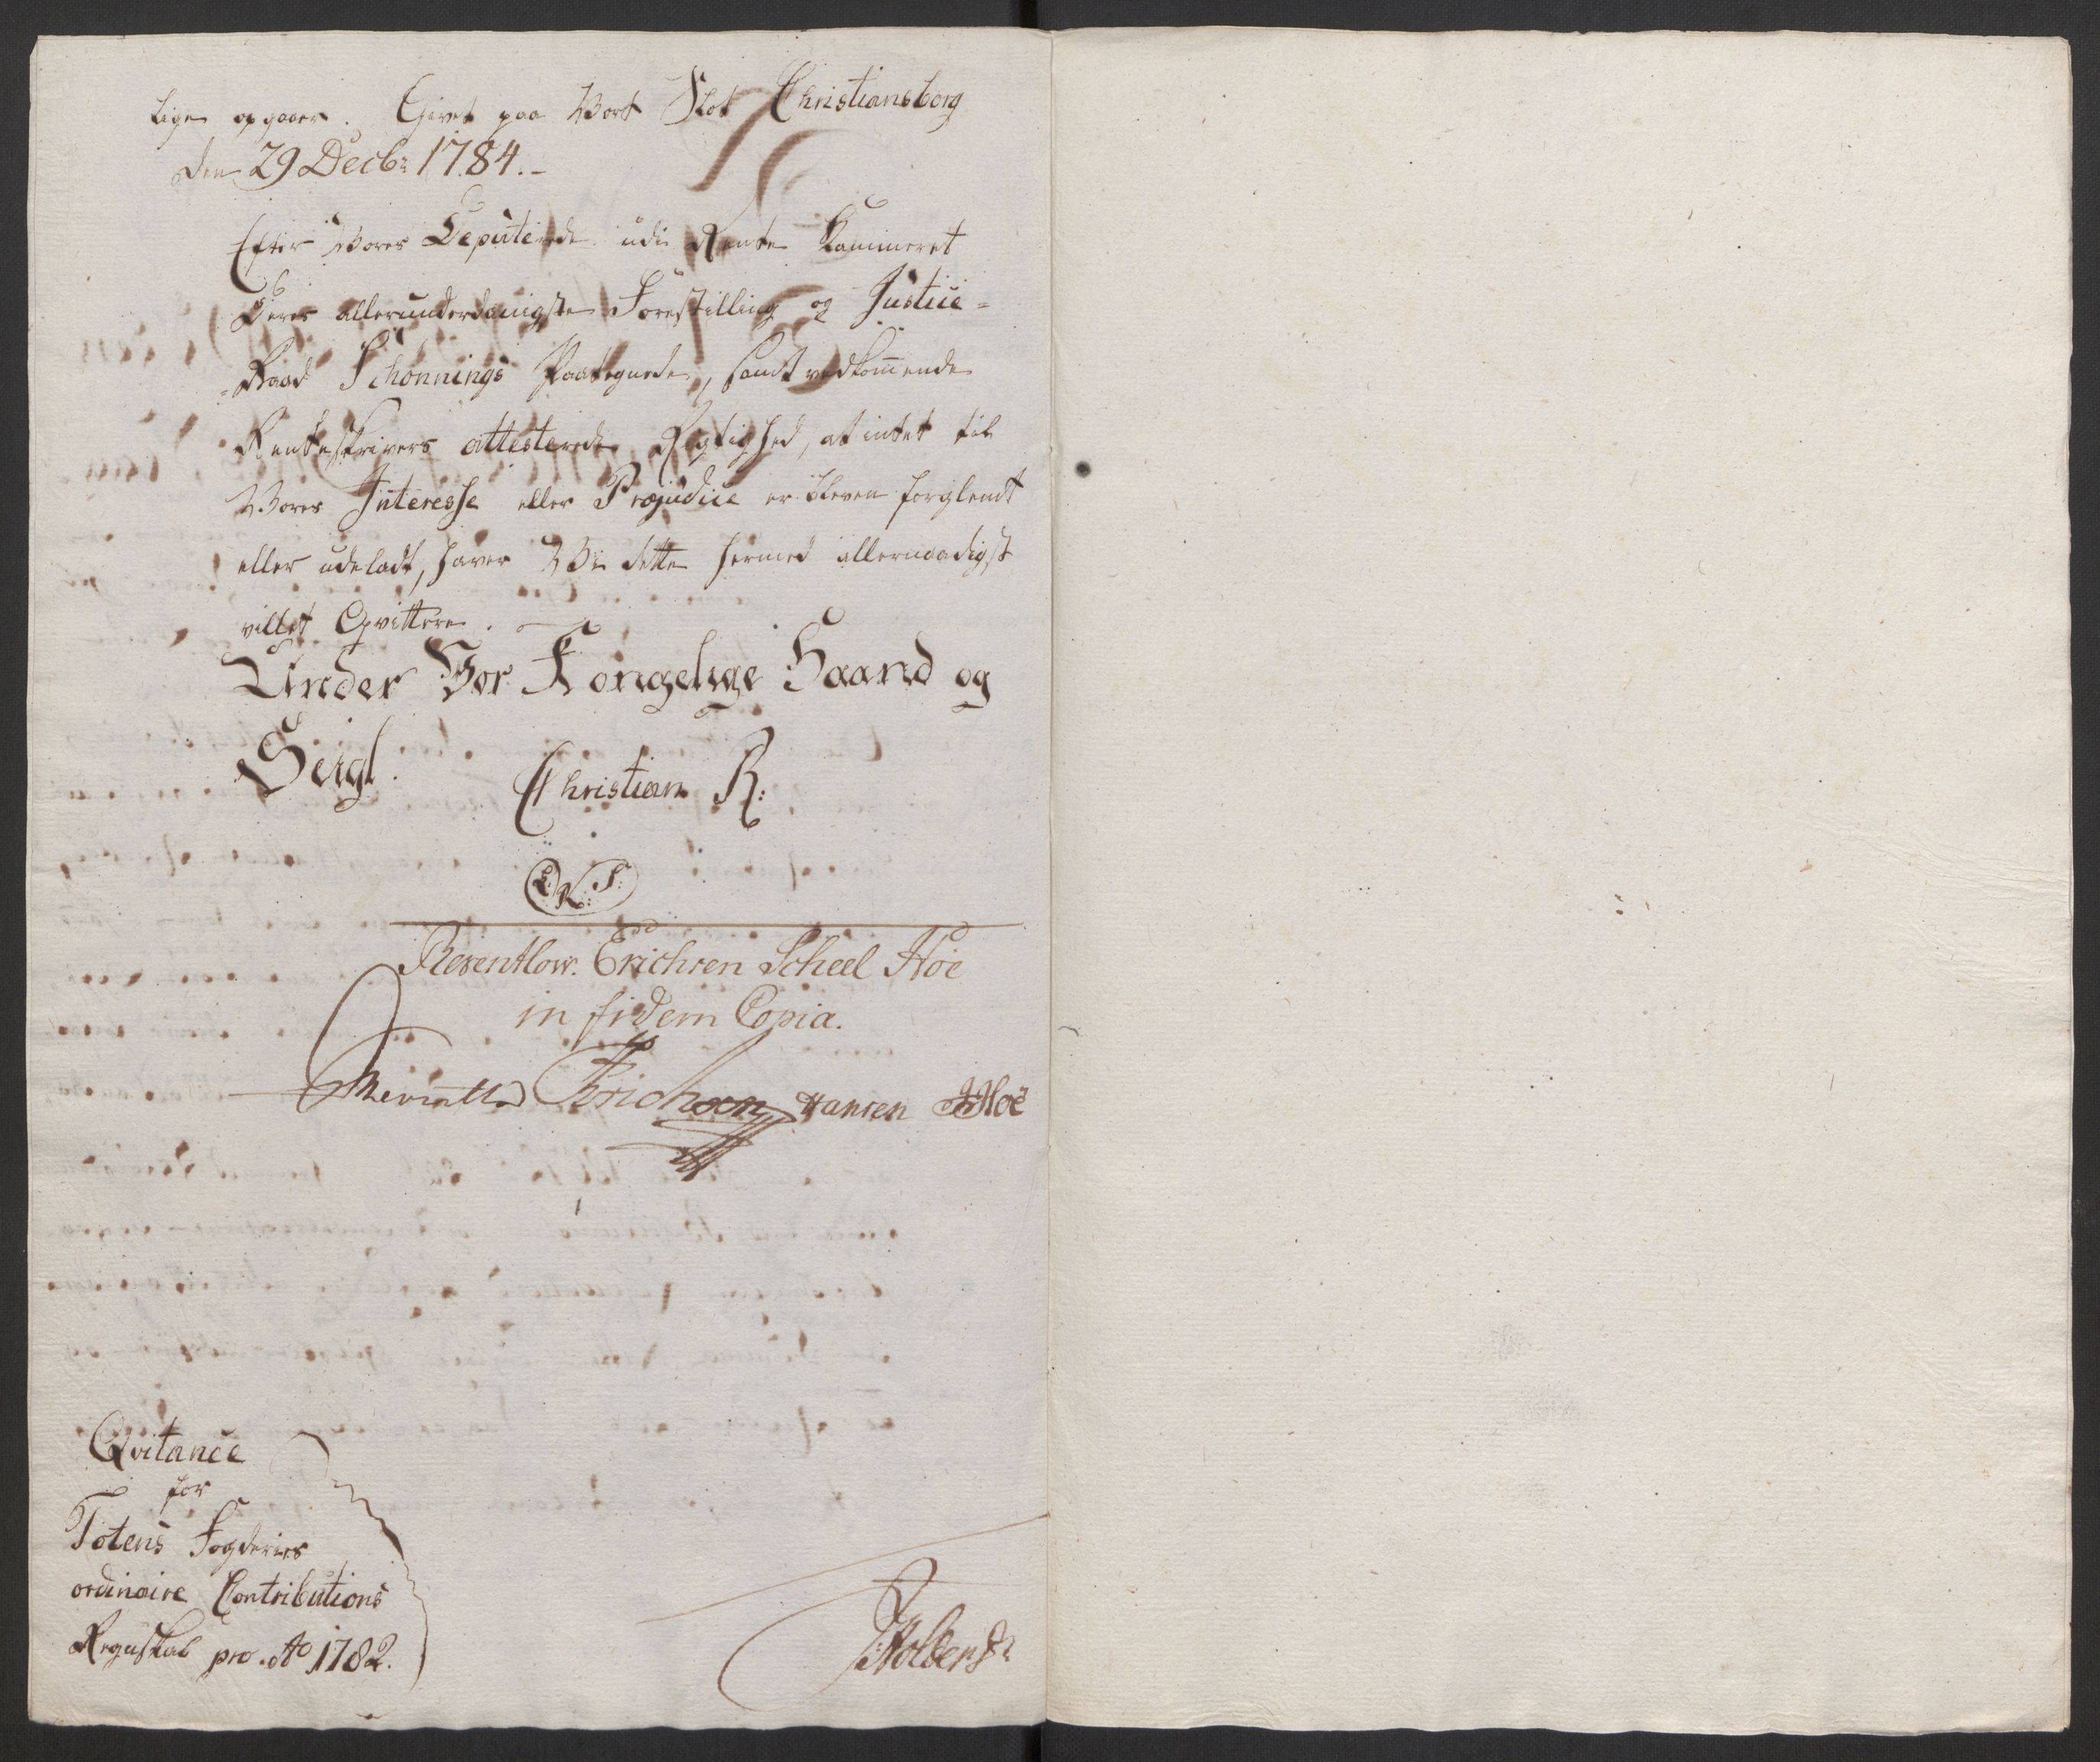 lige opgaaer. Givet paa Vort Slot Christiansborg
den 29 Decbr 1784.-
Efter Vores Deputerede udi Rente Kammeret
Deres allerunderdanigste Forestilling og Justice-
-Raad Schønnings Paategnede, samt vedkommende
Renteskrivers attesterede Rigtighed, at intet til
Vores Interesse eller Præjudice er bleven forglemt
eller udeladt, haver Vi dette hermed allernaadigst
villet Qvittere.
Under Vor Kongelige Haand og
Seigl.
Christian R:
L: R: S:
Reventlow. Erichsen Scheel Höe
in fidem Copia.
Reventlow Erichsen Hansen Höe
Qvitance
for
Totens Fogderies
ordinaire Contributions
Regnskab pro Ao 1782.